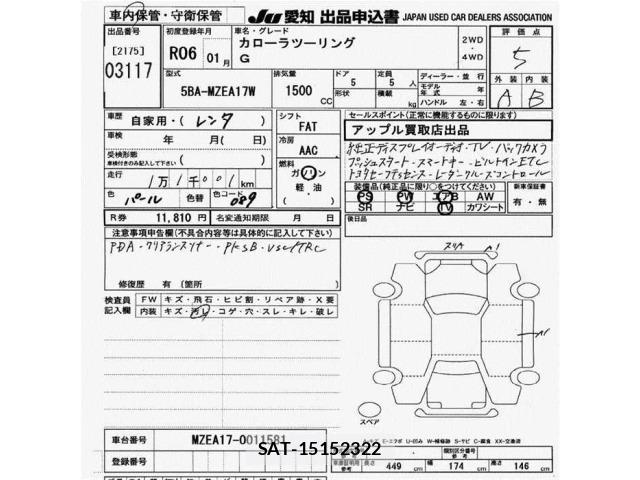 車内保管・守衛保管
JU 愛知 出品申込書 JAPAN USED CAR DEALERS ASSOCIATION
出品番号
[2175]
03117
初度登録年月
R06 01月
車名・グレード
カローラツーリング
G
2WD
・
4WD
評価点
5
型式
5BA-MZEA17W
排気量
1500 CC
ドア
5
定員
5 人
形状
積載
kg
ディーラー・並行
モデル年式 年
ハンドル 左・右
外装 内装
A B
車歴
自家用・(レンタ)
車検
年 月(日)
受検形態
車検付きのみ記入して下さい
走行
1万1千001km
色
パール
色替
色コード
089
シフト
FAT
冷房
AAC
燃料
ガソリン
軽・油
R券 11,810 円
名変通知期限 月 日
セールスポイント(正常に機能するものに限ります)
アップル買取店出品
純正ディスプレイオーディオ・TV・バックカメラ
プッシュスタート・スマートキー・ビルトインETC
トヨタセーフティセンス・レーダークルーズコントロール
装備品(純正品に限り○をつけてください)
PS PW エアB AW
SR ナビ TV カワシート
新車保証書
有・無
後日品
注意事項申告欄(不具合内容等は具体的に記入して下さい)
PDA・クリアランスソナー・PKSB・VSC/TRC
修復歴 有 〔箇所 〕
検査員記入欄
FW キズ・飛石・ヒビ割・リペア跡・X要
内装 キズ・汚レ・コゲ・穴・スレ・キレ・破レ
スリA A1
A1
スペア
A-キズ E-エクボ U-凹み W-補修跡 S-サビ C-腐食 XX-交換済
車台番号
MZEA17-0011581
登録番号
SAT-15152322
車検証明用参考
類別区分番号
参考
長さ 449 cm
幅 174 cm
高さ 146 cm